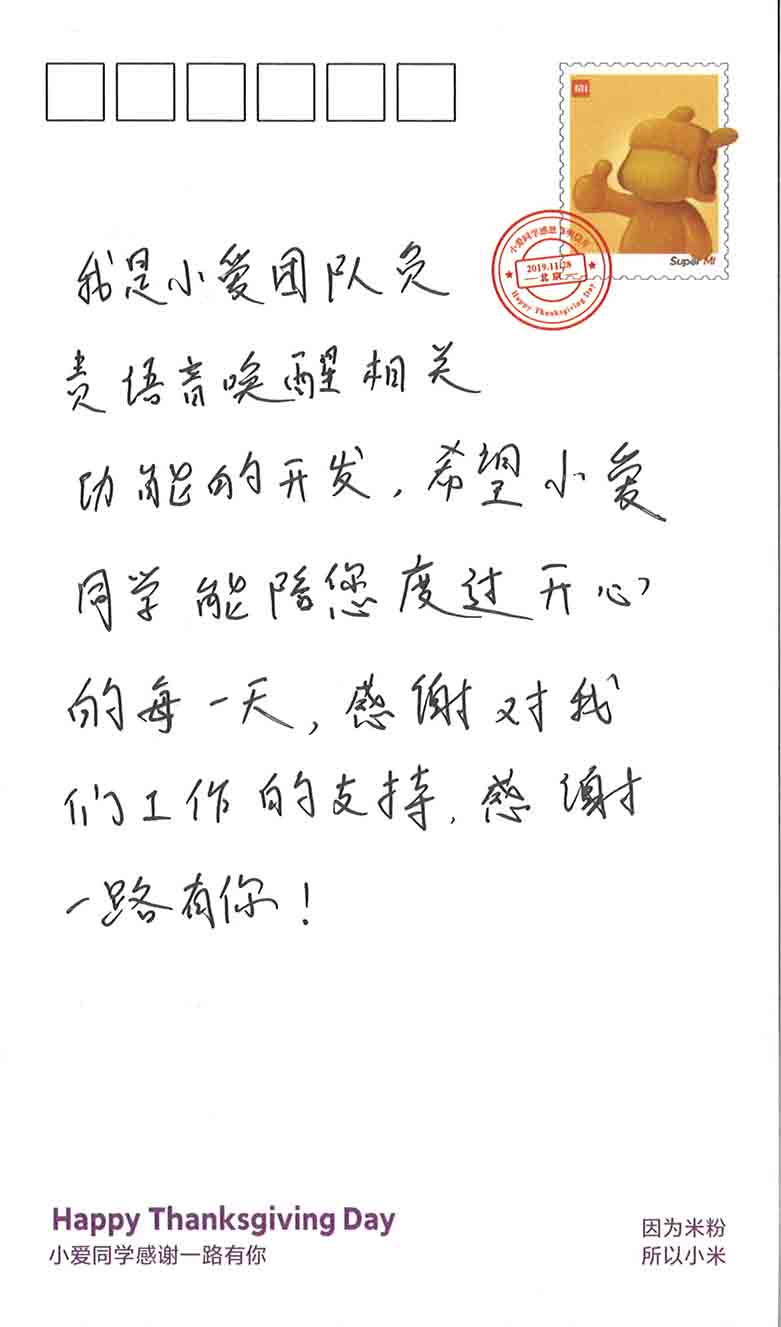 MI
Super MI
小爱同学感恩
2019.11.28
北京
Happy Thanksgiving Day
我是小爱团队负
责语音唤醒相关
功能的开发，希望小爱
同学能陪您度过开心
的每一天，感谢对我
们工作的支持，感谢
一路有你！
Happy Thanksgiving Day
小爱同学感谢一路有你
因为米粉
所以小米